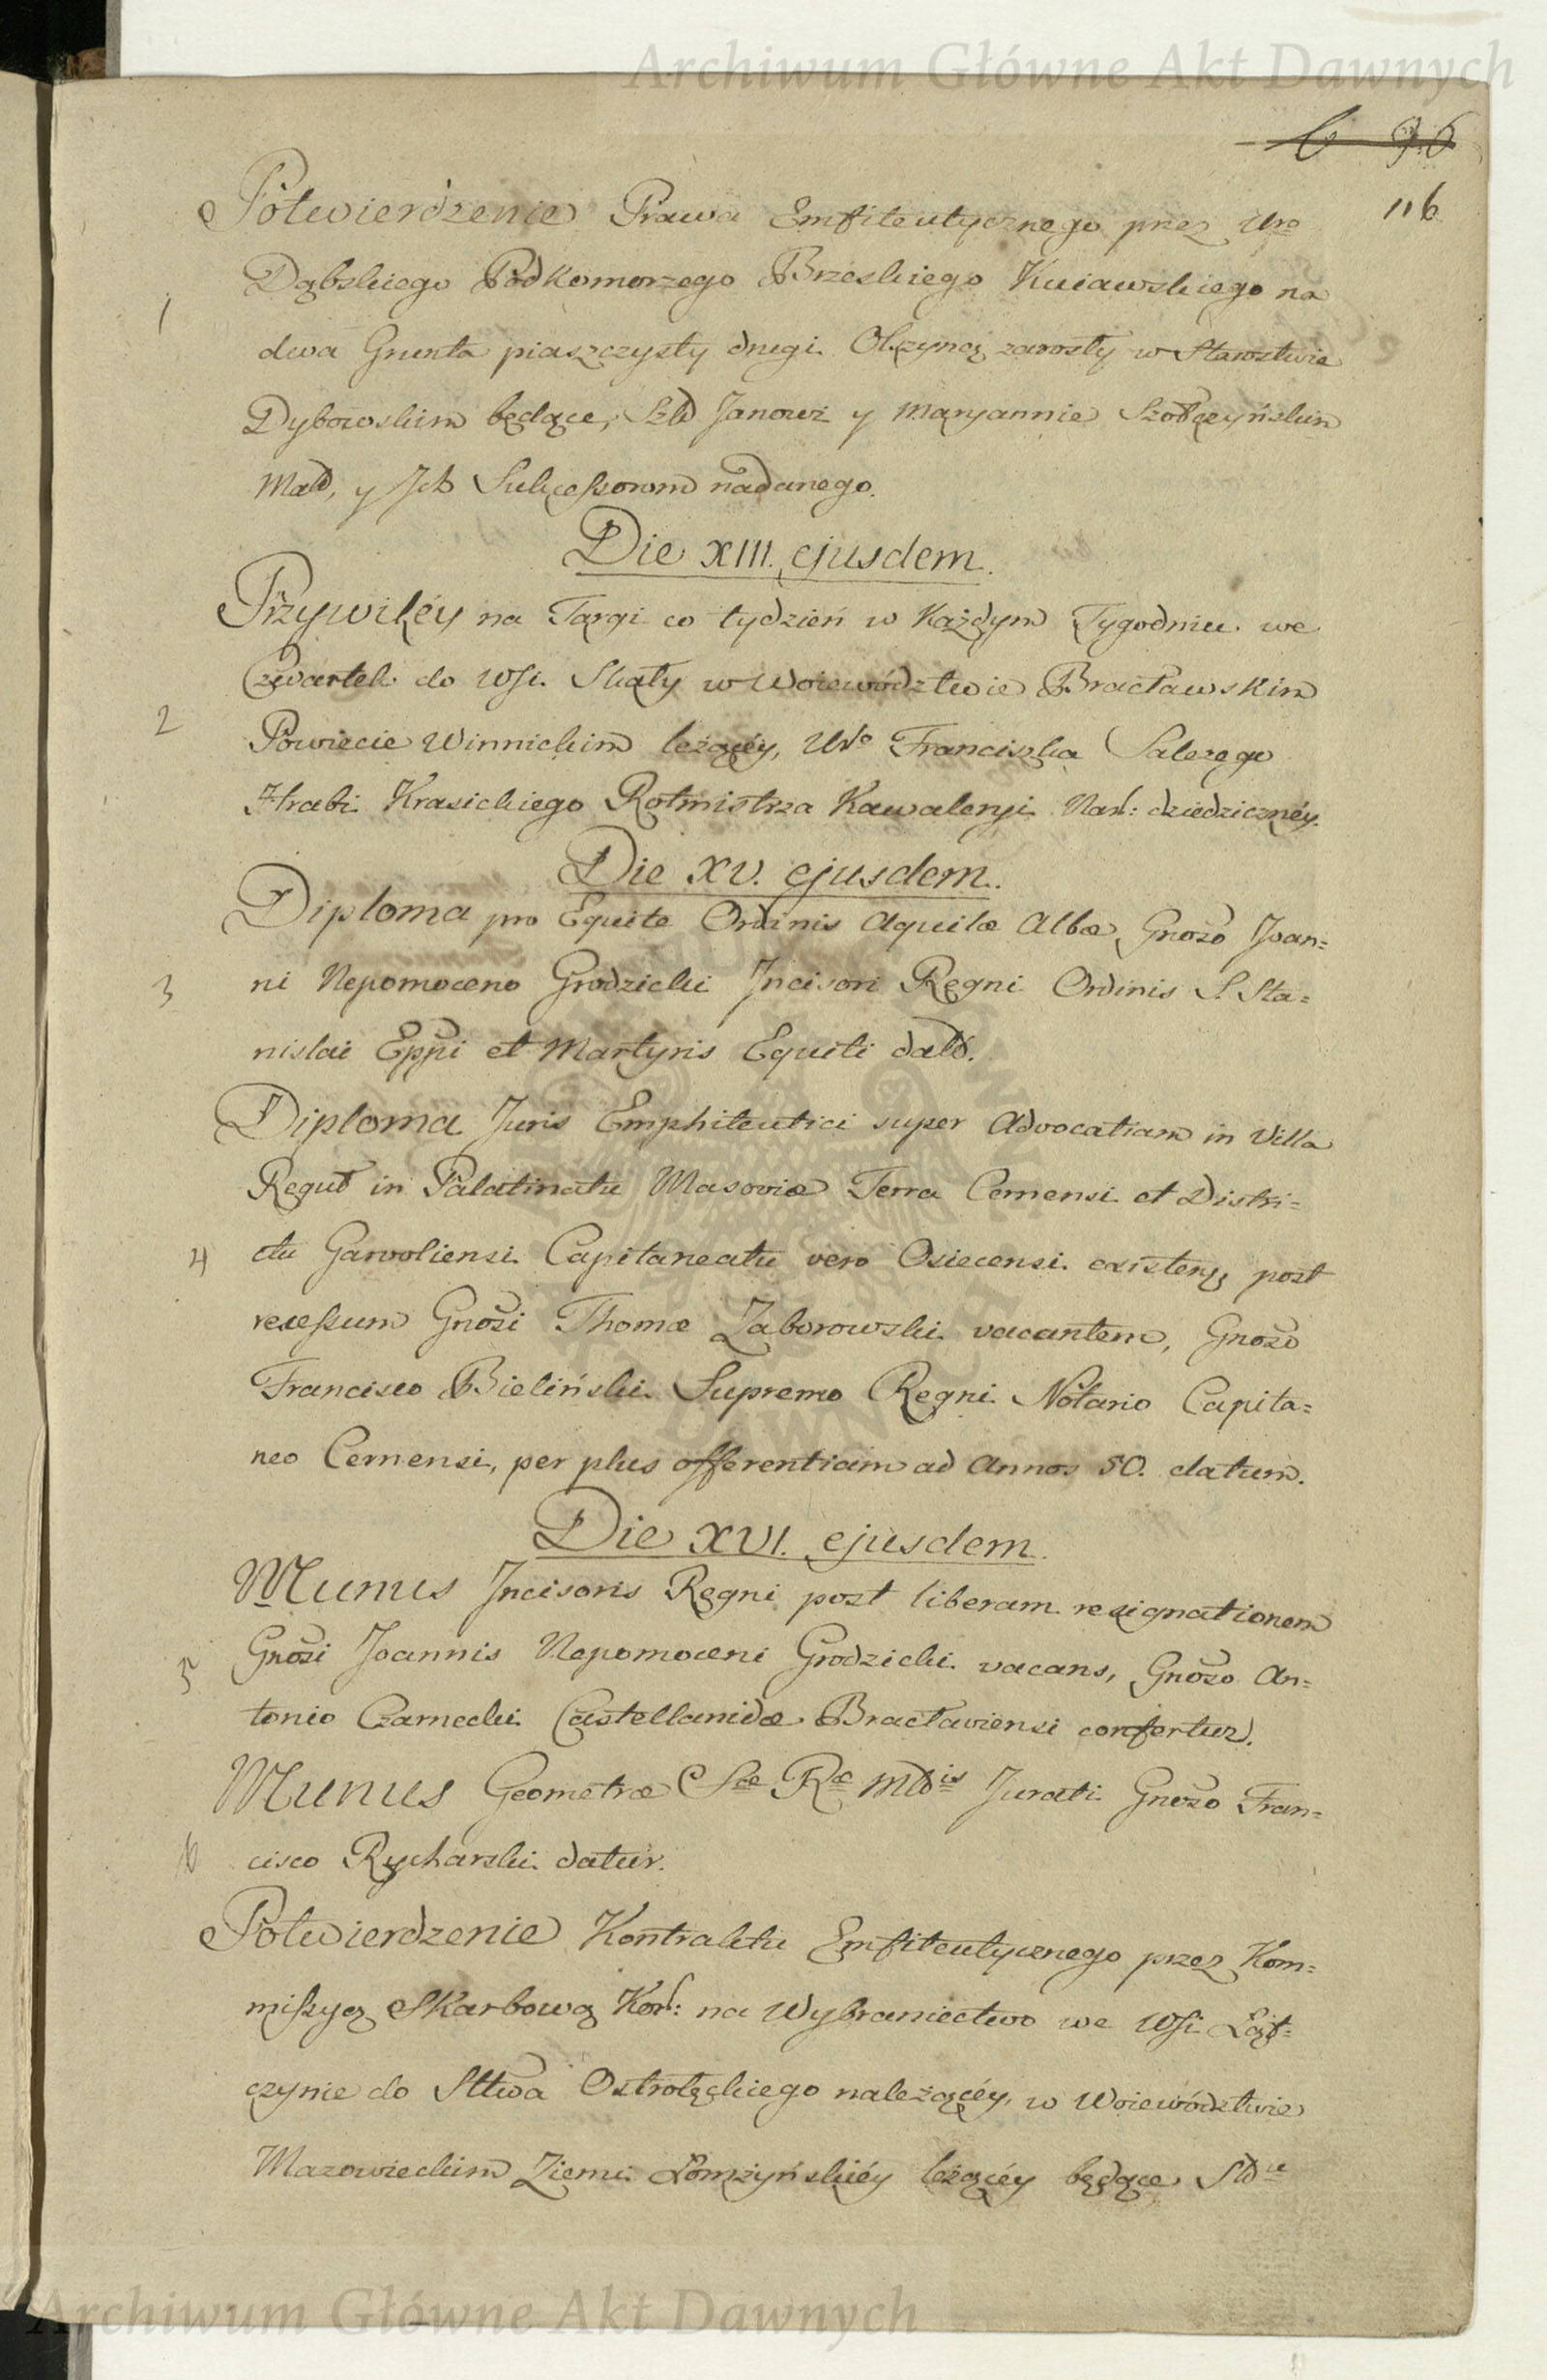 Archiwum Główne Akt Dawnych
116
Potwierdzenie Prawa Emfiteutycznego przez Uro
Dąbskiego Podkomorzego Brzeskiego Kuiawskiego na
1
dwa Grunta piaszczysty drugi Olszyną zarosły w Starostwie
Dybowskim będące, Szld Janowi y Maryannie
Małd, y Ich Sukcessorom nadanego.
Die XIII. ejusdem.
Przywiléy na Targi co tydzień w Każdym Tygodniu we
Czwartek do Wsi Skały w Woiewództwie Bracławskim
2
Powiecie Winnickim leżącéy, Uro Franciszka Salezego
Hrabi Krasickiego Rotmistrza Kawaleryi Nar: dziedzicznéy.
Die XV. ejusdem.
Diploma pro Equite Ordinis Aquilæ Albæ, Gnoso Joan=
3
ni Nepomoceno Grodzicki Incisori Regni Ordinis S. Sta=
nislai Eppi et Martyris Equiti datt.
Diploma Juris Emphiteutici super Advocatiam in Villa
Regut in Palatinatu Masoviæ Terra Cernensi et Distri=
4
ctu Garvoliensi Capitaneatu vero Osiecensi existen, post
recessum Gnosi Thomæ Zaborowski vacantem, Gnoso
Francisco Bieliński Supremo Regni Notario Capita=
neo Cernensi, per plus offerentiam ad Annos 50. datum.
Die XVI. ejusdem.
Munus Incisoris Regni post liberam resignationem
5
Gnosi Joannis Nepomoceni Grodzicki vacans, Gnoso An=
tonio Czarnecki Castellanidæ Bracłaviensi confertur.
Munus Geometræ Sæ Ræ Mttis Jurati Gnoso Fran=
6
cisco Rycharski datur.
Potwierdzenie Kontraktu Emfiteutycznego przez Kom=
missyą Skarbową Kor: na Wybraniectwo we Wsi Łąt=
czynie do Sttwa Ostrołęckiego należącéy, w Woiewództwie
Mazowieckim Ziemi Łomżyńskiéy leżącéy będące
Archiwum Główne Akt Dawnych